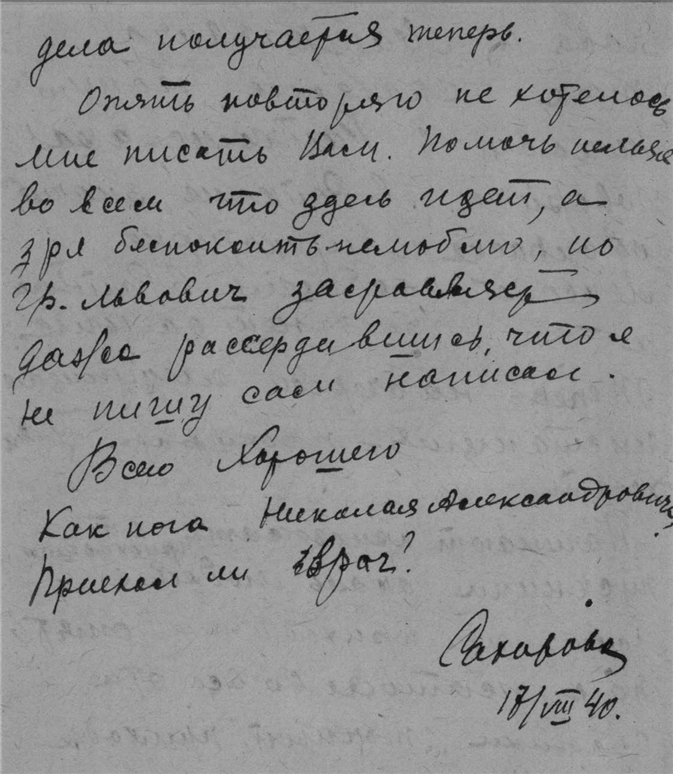 дела получается теперь.
Опять повторяю не хотелось
мне писать Вам. Помочь нельзя
во всем что здесь идет, а
зря беспокоить не люблю, но
гр. Львович заставляет
даже рассердившись, что я
не пишу сам написал.
Всего Хорошего
Как нога Николая Александровича,
Приехал ли врач?
Сахарова
17/VIII 40.